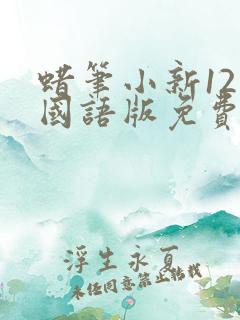 蜡筆小新12
國語版免費
浮生永夏
未经同意禁止转载